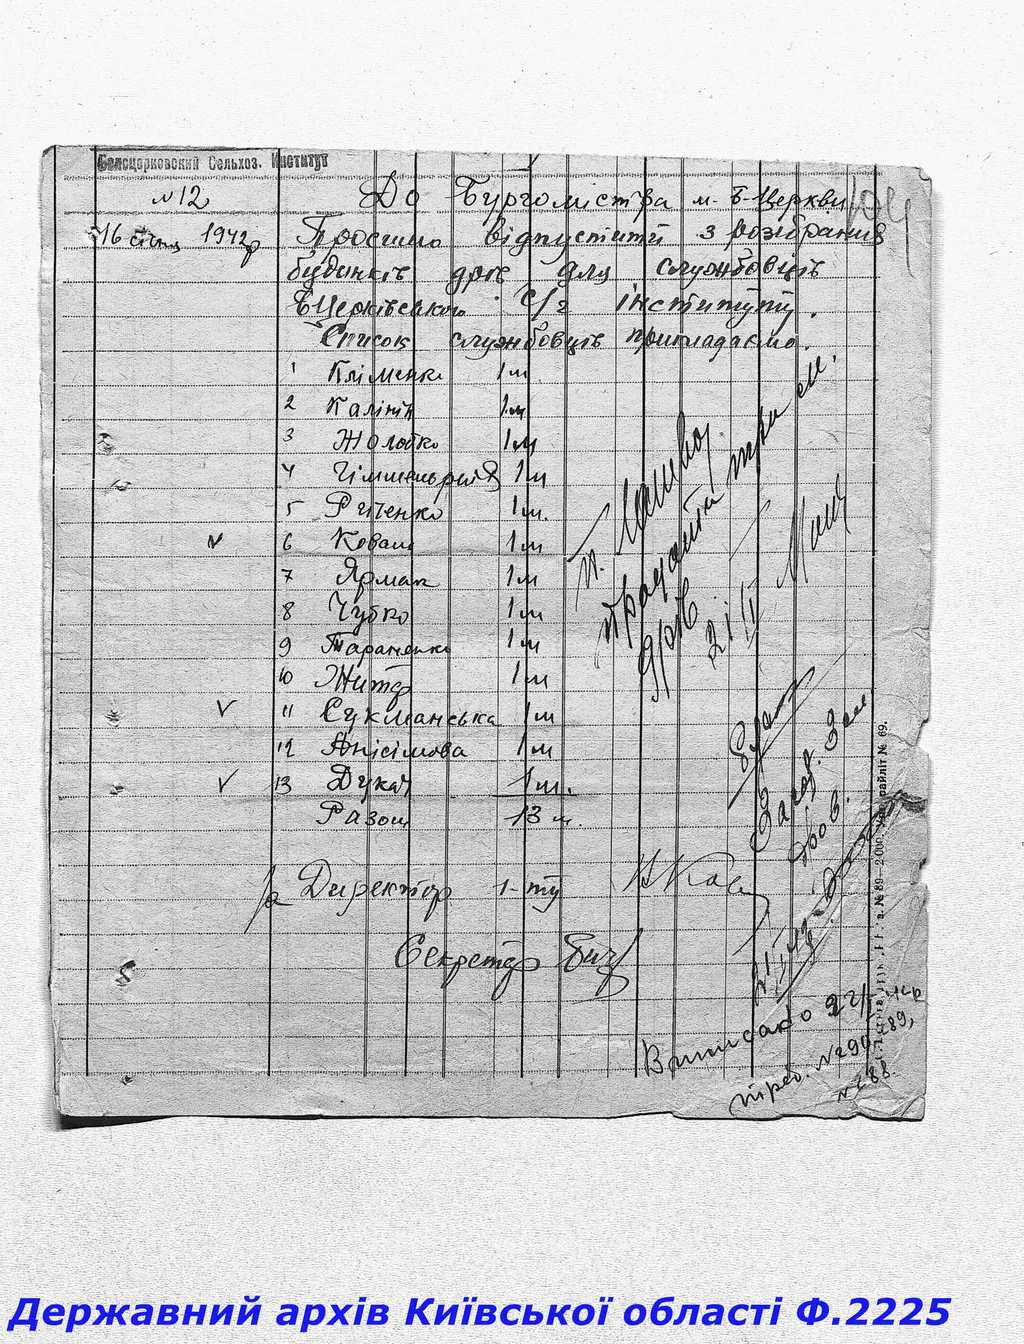 Белоцерковский Сельхоз. Институт
№12 До Бургомістра м. Б-Церкви
16 січня 1942 р Просимо відпустити з розібрання
будинків дров для службовців
БЦерківського С/г інституту.
Список службовців прикладаємо.
1 Кліменко 1 м
2 Калінін 1 м
3 Жолобко 1 м
4 1 м
5 1 м.
6 Коваль 1 м
7 Ярмак 1 м
8 Чубко 1 м
9 Тараненко 1 м
10 1 м
11 Сукманська 1 м
12 Анісімова 1 м
13 Дукач 1 м.
Разом 13 м.
Директор І-ту
Секретар
п.
три см.
дров
21/II
104
Виписано 22/I
треб. №290, 289,
№288.
Державний архів Київської області Ф.2225